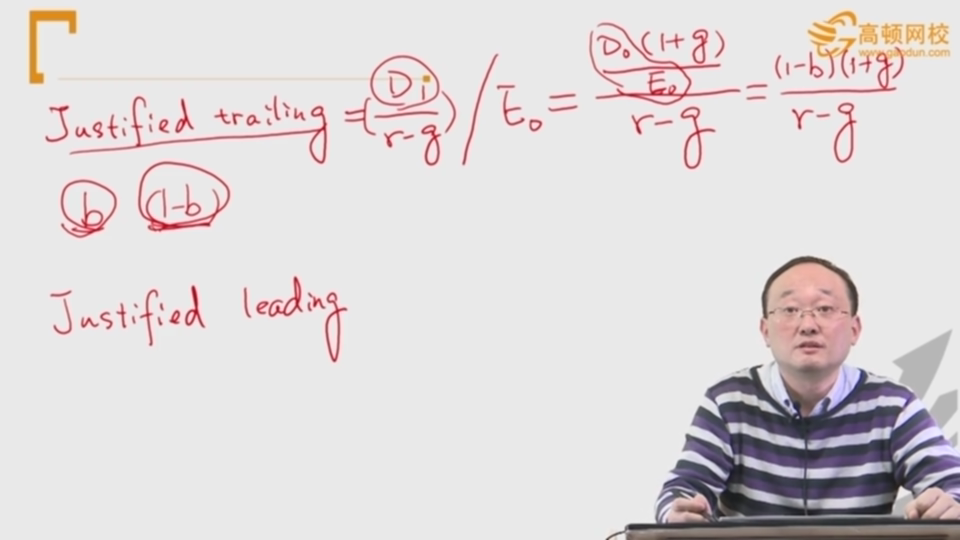 高顿网校
www.gaodun.com
Justified trailing = (D₁/(r-g)) / E₀ = (D₀(1+g)/E₀)/(r-g) = (1-b)(1+g)/(r-g)
b (1-b)
Justified leading